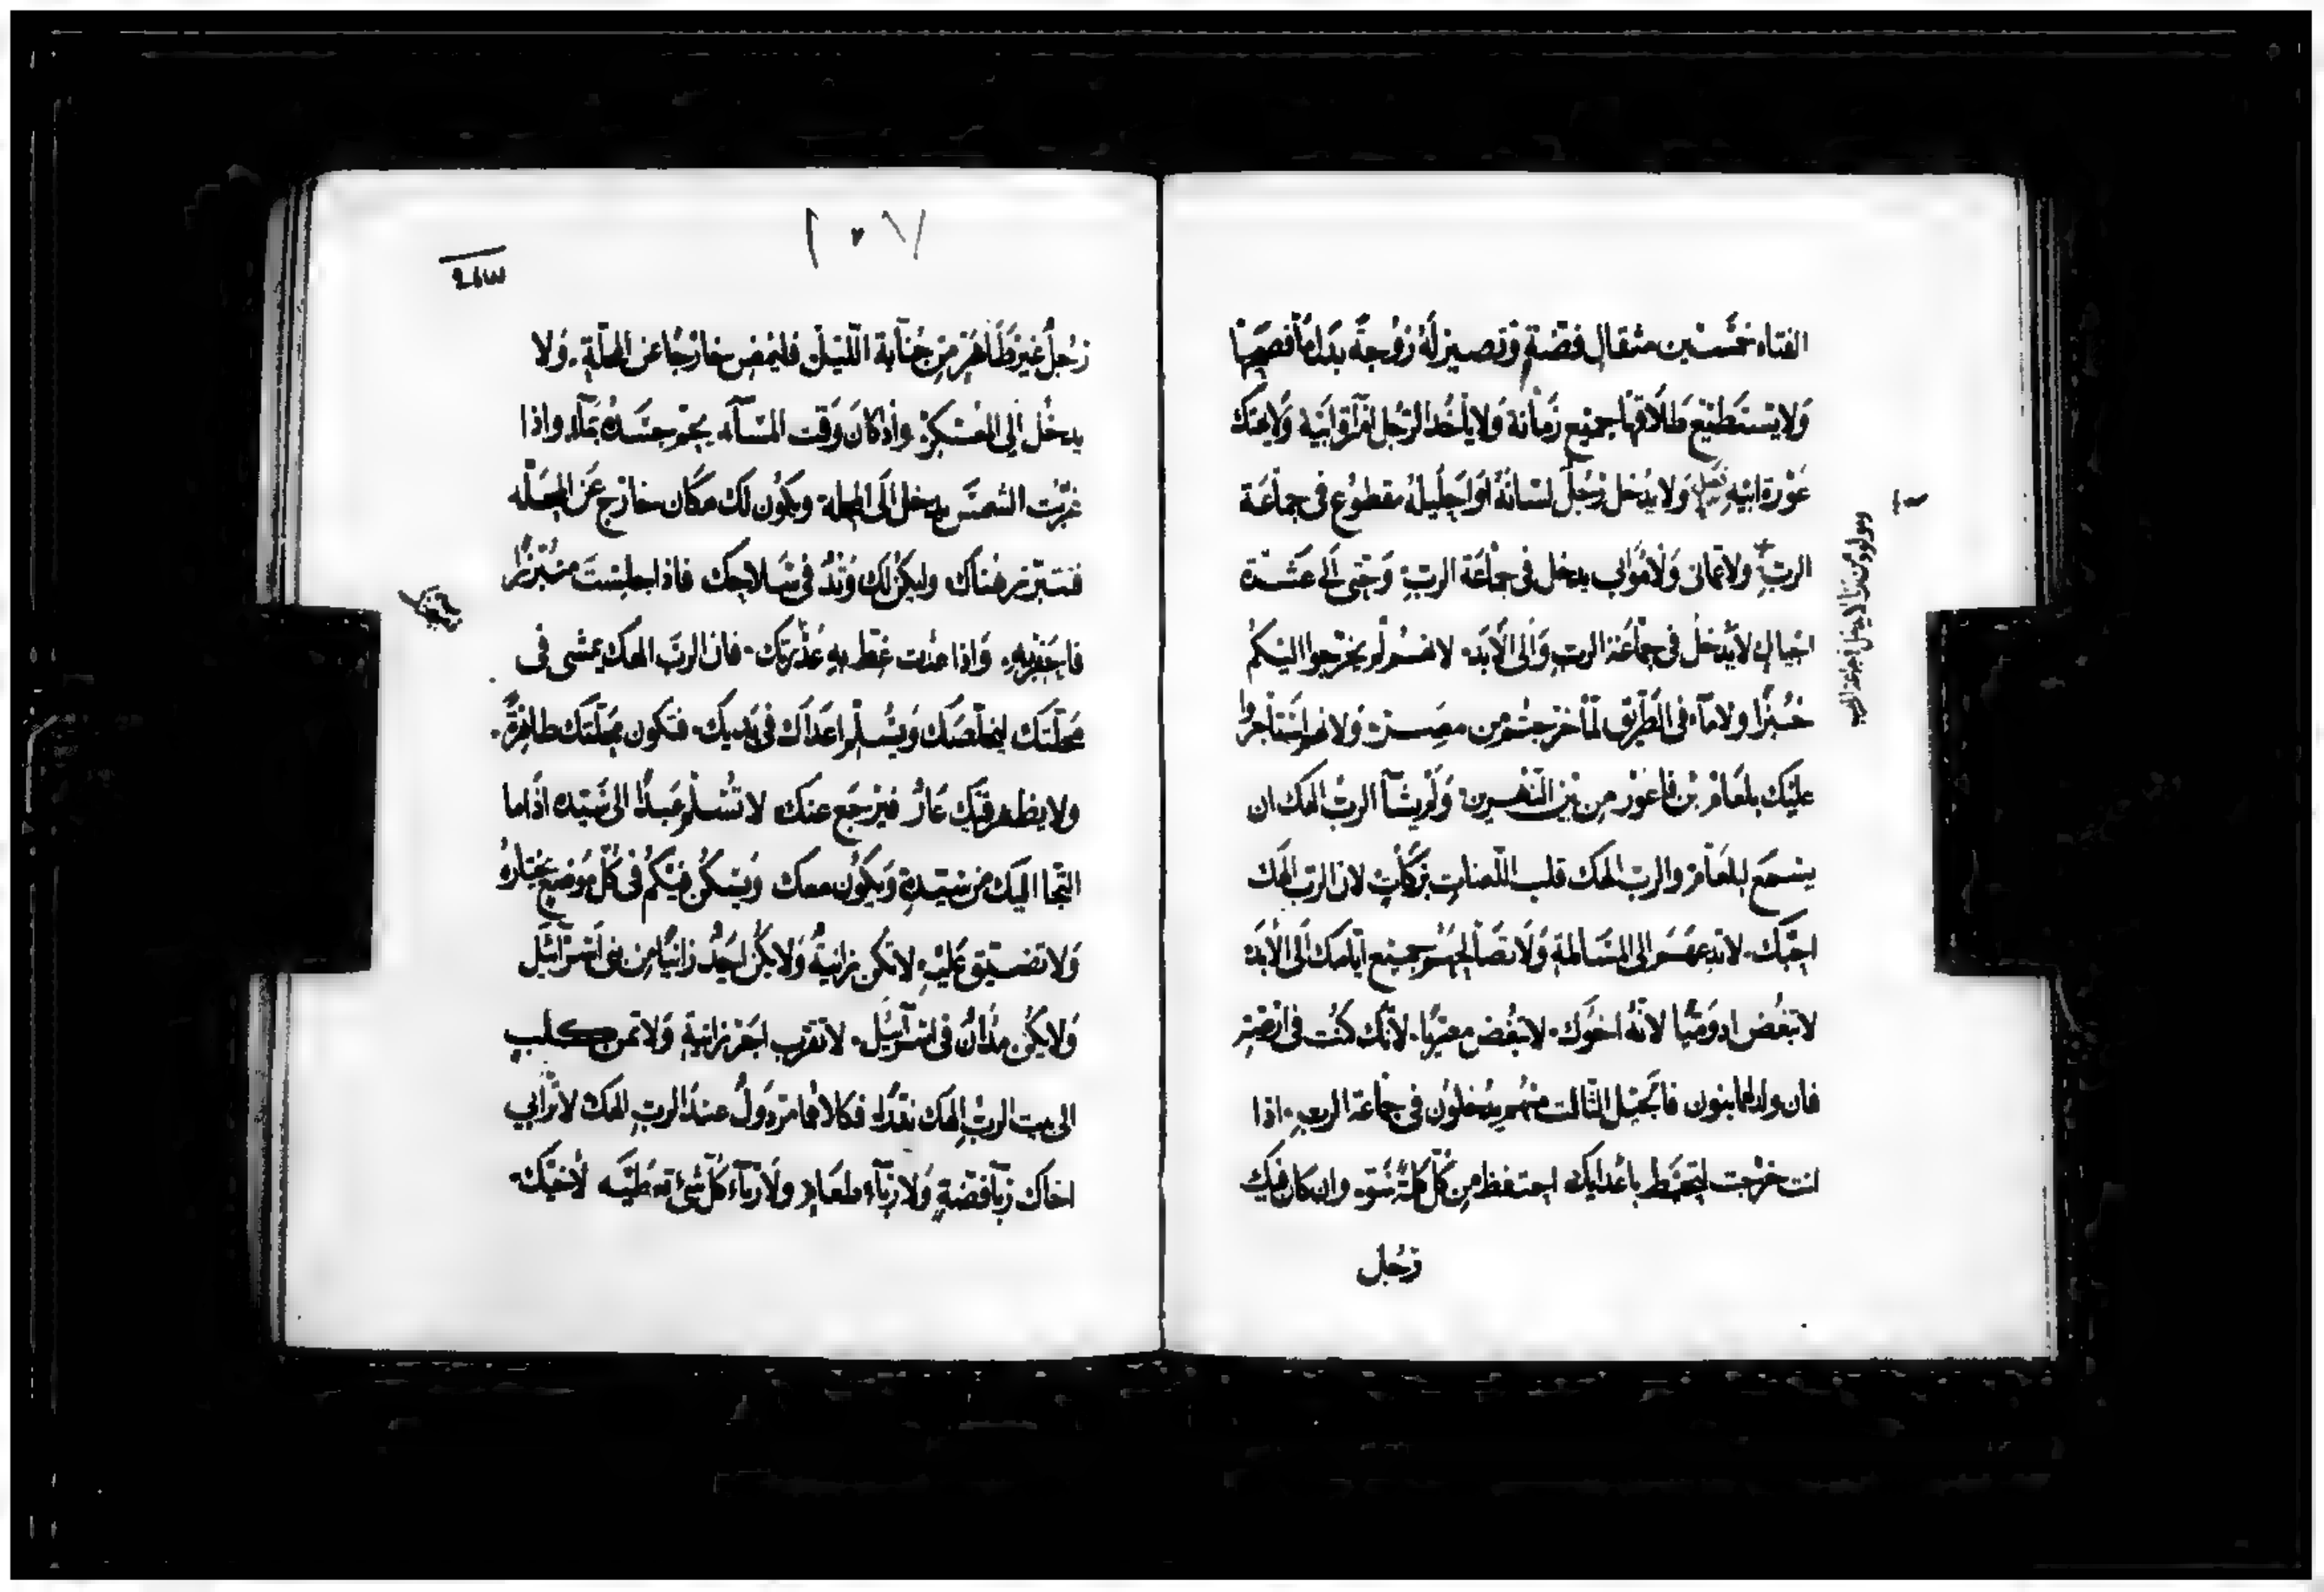 الفتاه خمسين مثقال فضة وتصير له زوجة بدل ما فضحها
ولا يستطيع طلاقها جميع زمانه ولا ياخذ الرجل امراة ابيه ولا يهتك
عورة ابيه ولا يدخل رجل لسانه او احليله مقطوع في جماعة
الرب ولا عماني ولا موابي يدخل في جماعة الرب وحتى الى عشرة
اجيال لا يدخل في جماعة الرب والى الابد لانهم لم يخرجوا اليكم
خبزا ولا ماء في الطريق لما خرجتم من مصر ولانهم استاجروا
عليك بلعام بن فاعور من بين النهرين ولم يشا الرب الهك ان
يسمع لبلعام والرب الهك قلب اللعنات بركات لان الرب الهك
احبك لا تدعهم الى المسالمة ولا تصالحهم جميع ايامك الى الابد
لا تبغض ادوميا لانه اخوك لا تبغض مصريا لانك كنت في ارضهم
فان ولد لهما بنون فالجيل الثالث منهم يدخلون في جماعة الرب اذا
انت خرجت لتحتط باعدايك احتفظ من كل كلمة سو وان كان فيك
رجل
مولود من زنا لا يدخل جماعة الرب
١٠٧
رجل غير طاهر من جنابة الليل فليمض خارجا عن المحلة ولا
يدخل الى العسكر واذا كان وقت المساء يحم جسده بماء واذا
غربت الشمس يدخل الى المحلة ويكون لك مكان خارج عن المحله
فتتبرز هناك وليكن لك وتد في سلاحك فاذا جلست متبرزا
فاحفر به واذا عدت غط به عذرتك فان الرب الهك يمشي في
محلتك ليخلصك ويسلم اعداك في يديك فتكون محلتك طاهرة
ولا يظهر فيك عار فيرجع عنك لا تسلم عبدا الى سيده اذا ما
التجا اليك من سيده ويكون معك ويسكن فيكم في كل موضع يختاره
ولا تضيق عليه لا تكن زانية ولا يكن احد زانيا من بني اسرائيل
ولا يكن مدان في اسرائيل لا تقرب اجر زانية ولا ثمن كلب
الى بيت الرب الهك نقدا فكلاهما مردول عند الرب الهك لا ترابي
اخاك ربا فضة ولا رباء طعام ولا رباء كل شي تعطيه لاخيك